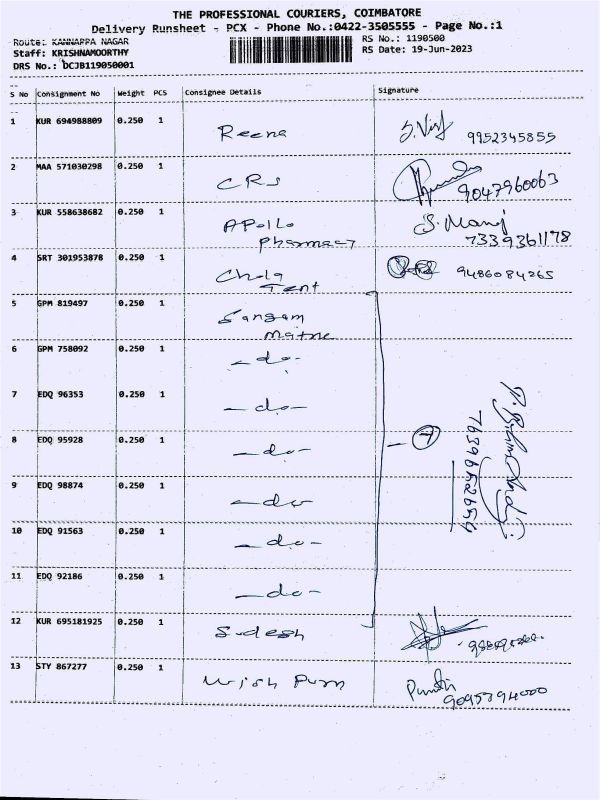 THE PROFESSIONAL COURIERS, COIMBATORE
Delivery Runsheet - PCX - Phone No.:0422-3505555 - Page No.:1
Route: KANNAPPA NAGAR
RS No.: 1190500
Staff: KRISHNAMOORTHY
RS Date: 19-Jun-2023
DRS No.: DCJB119050001
S No Consignment No Weight PCS Consignee Details Signature
1 KUR 694988809 0.250 1 Reena 9952345855
2 MAA 571030298 0.250 1 CRS 9047960063
3 KUR 558638682 0.250 1 Apollo S. Manoj
Pharmacy 7339361178
4 SRT 301953878 0.250 1 Chola 9486084265
Tent
5 GPM 819497 0.250 1 Sangam
6 GPM 758092 0.250 1 -do-
7 EDQ 96353 0.250 1 -do-
8 EDQ 95928 0.250 1 -do- 7
9 EDQ 98874 0.250 1 -do-
10 EDQ 91563 0.250 1 -do-
11 EDQ 92186 0.250 1 -do-
12 KUR 695181925 0.250 1 Sudesh
13 STY 867277 0.250 1